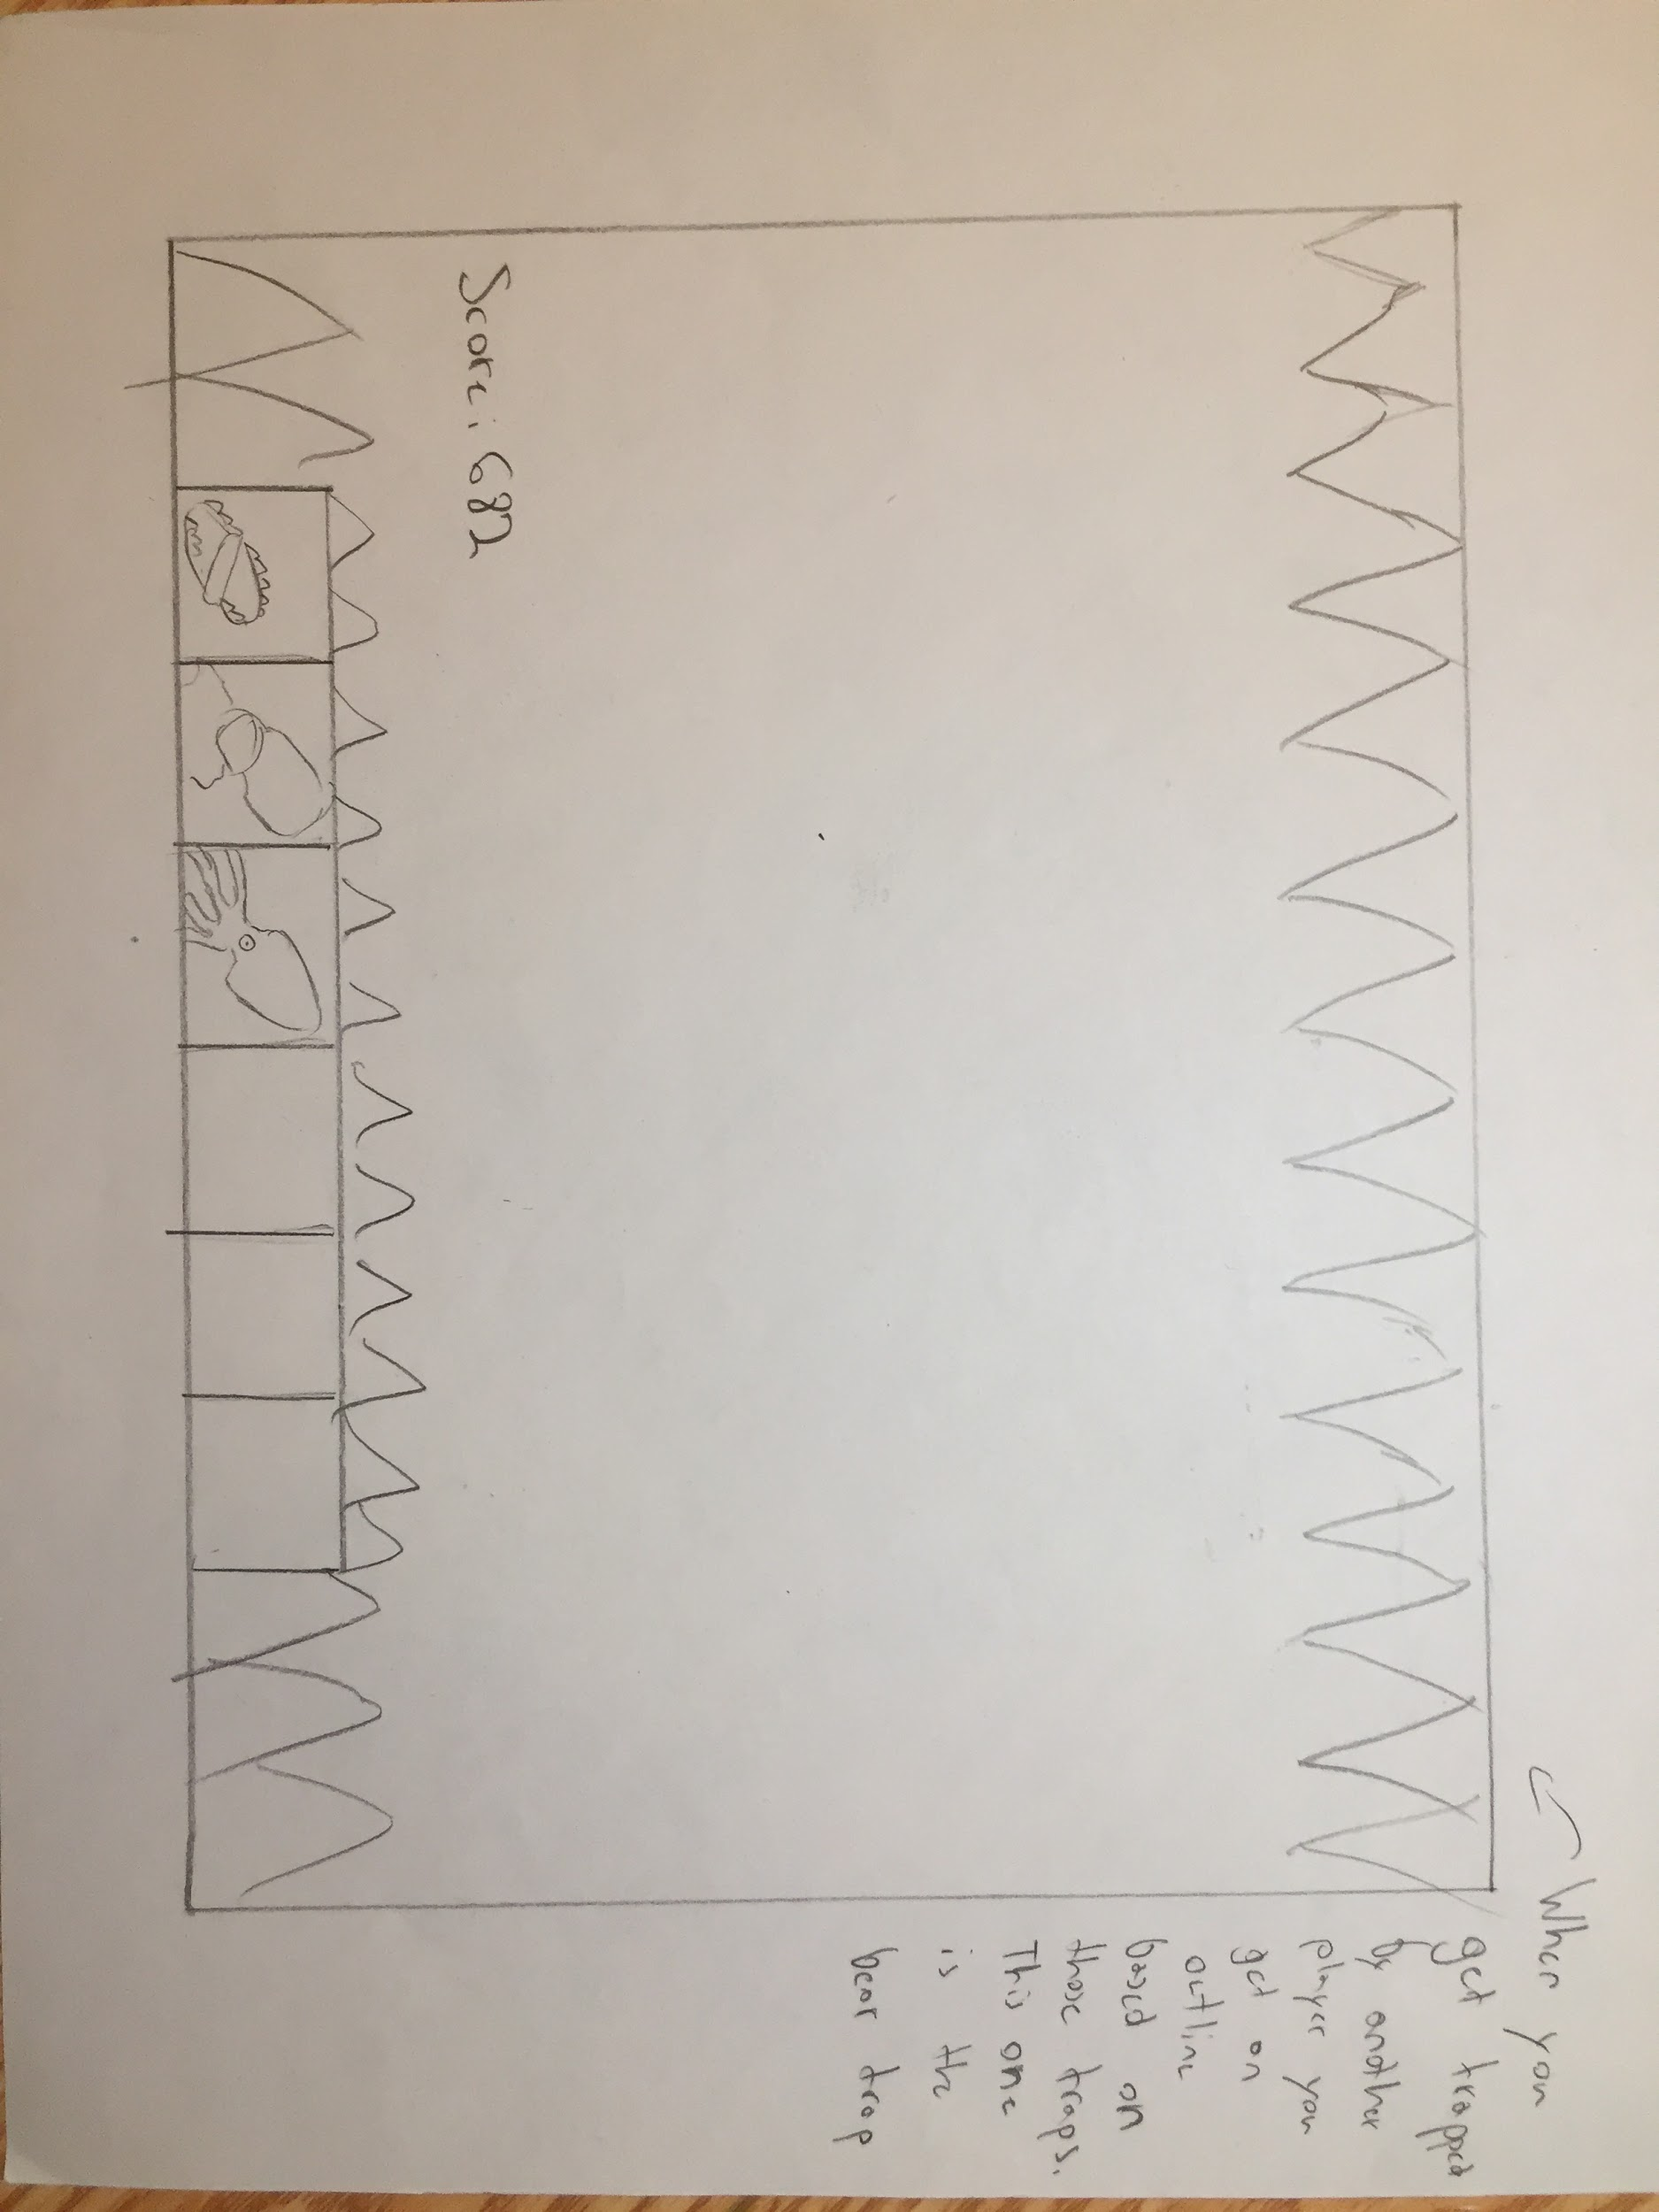 Score: 682
When you
get trapped
by another
player you
get an
outline
based on
those traps.
This one
is the
bear trap